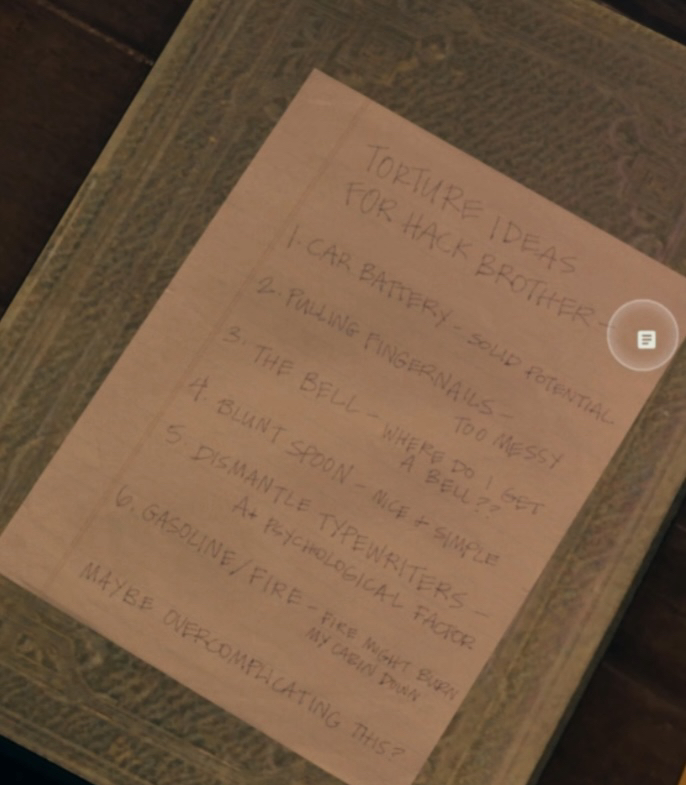 TORTURE IDEAS
FOR HACK BROTHER-
1. CAR BATTERY - SOLID POTENTIAL
2. PULLING FINGERNAILS -
TOO MESSY
3. THE BELL - WHERE DO I GET
A BELL??
4. BLUNT SPOON - NICE + SIMPLE
5. DISMANTLE TYPEWRITERS -
A+ PSYCHOLOGICAL FACTOR
6. GASOLINE/FIRE - FIRE MIGHT BURN
MY CABIN DOWN
MAYBE OVERCOMPLICATING THIS?